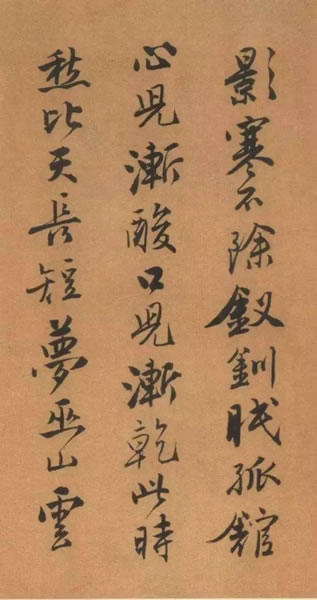 影寒不除釵釧眠孤館
心兒漸酸口兒漸乾此時
愁比天長短夢巫山雲